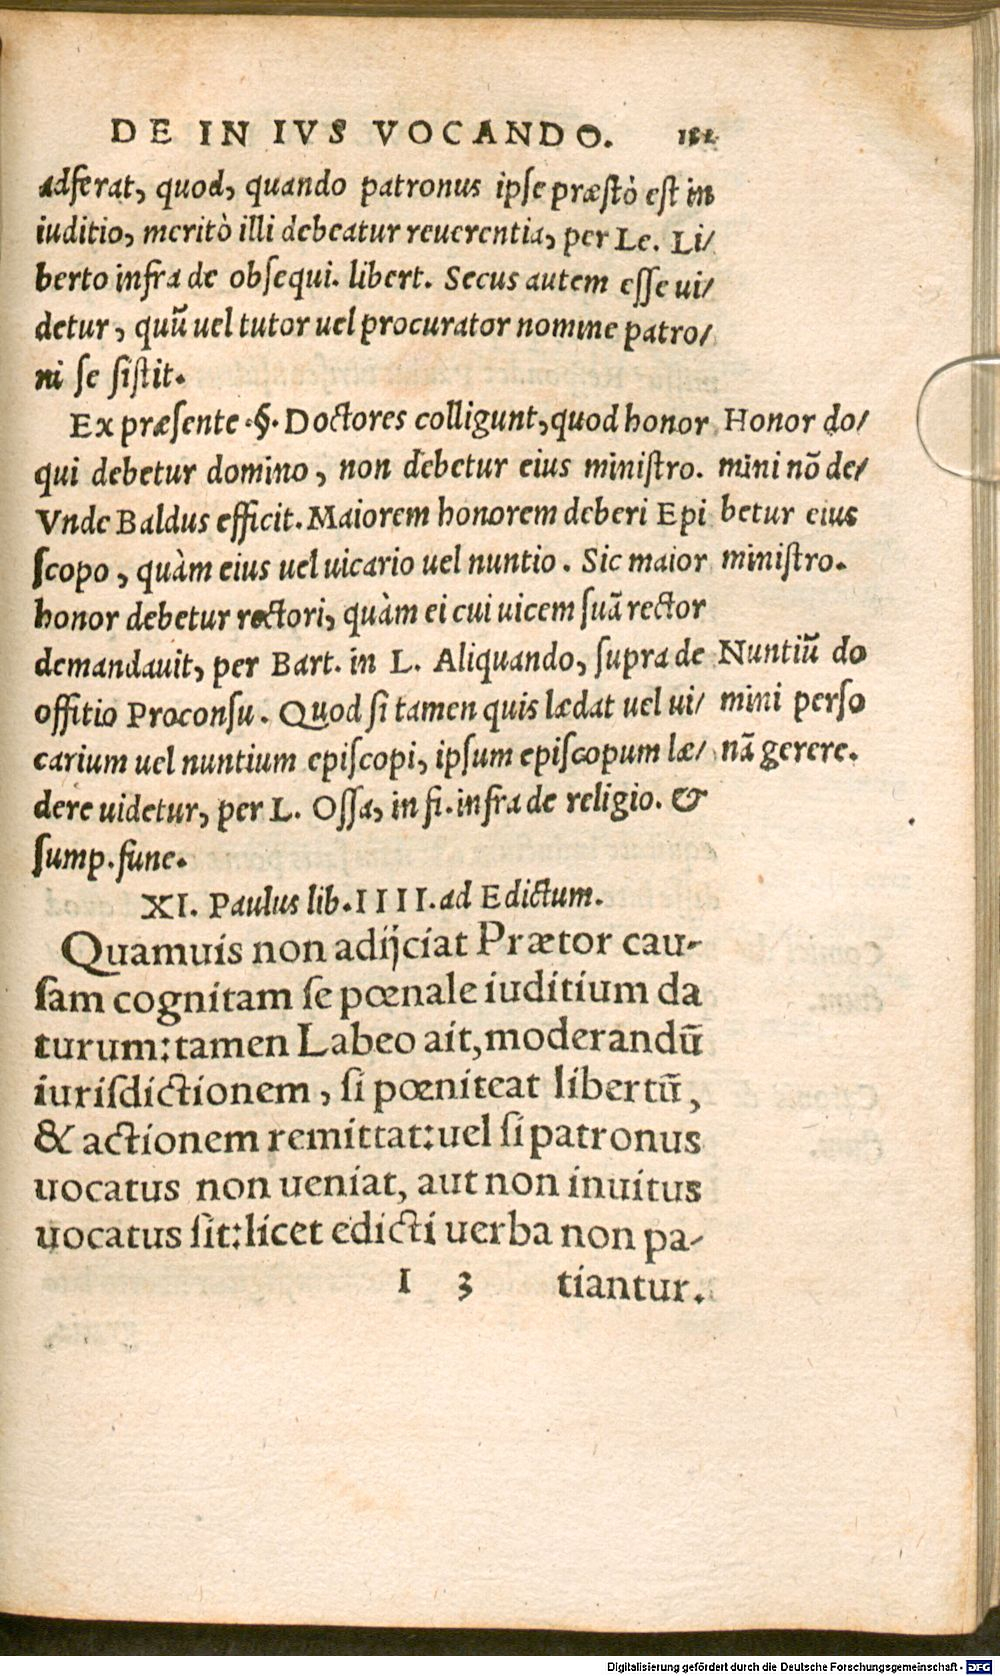 DE IN IVS VOCANDO.
adferat, quod, quando patronus ipse præstò est in
iuditio, meritò illi debeatur reuerentia, per Le. Li/
berto infra de obsequi. libert. Secus autem esse ui/
detur, quũ uel tutor uel procurator nomine patro/
ni se sistit.
Ex præsente .§. Doctores colligunt, quod honor
qui debetur domino, non debetur eius ministro.
Vnde Baldus efficit. Maiorem honorem deberi Epi
scopo, quàm eius uel uicario uel nuntio. Sic maior
honor debetur rectori, quàm ei cui uicem suã rector
demandauit, per Bart. in L. Aliquando, supra de
offitio Proconsu. Quod si tamen quis lædat uel ui/
carium uel nuntium episcopi, ipsum episcopum læ/
dere uidetur, per L. Ossa, in fi. infra de religio. &
sump. fune.
Honor do/
mini nõ de/
betur eius
ministro.
Nuntiũ do
mini perso
nã gerere.
XI. Paulus lib. IIII. ad Edictum.
Quamuis non adijciat Prætor cau-
sam cognitam se pœnale iuditium da
turum: tamen Labeo ait, moderandũ
iurisdictionem, si pœniteat libertũ,
& actionem remittat: uel si patronus
uocatus non ueniat, aut non inuitus
uocatus sit: licet edicti uerba non pa-
I 3 tiantur.
Digitalisierung gefördert durch die Deutsche Forschungsgemeinschaft - DFG